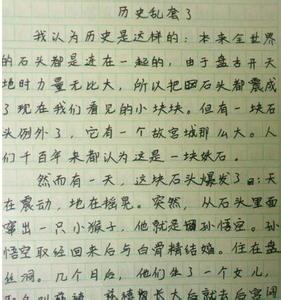 历史乱套了
我认为历史是这样的：本来全世界
的石头都是连在一起的，由于盘古开天
地时力量无比大，所以把石头都震成
了现在我们看见的小块块。但有一块石
头例外了，它有一个故宫城那么大。人
们千百年来都认为这是一块妖石。
然而有一天，这块石头爆发了：天
在震动，地在摇晃。突然，从石头里面
窜出一只小猴子，他就是孙悟空。孙
悟空取经回来后与白骨精结婚。住在盘
丝洞。几个月后，他们生了一个女儿，
长大后就去后宫